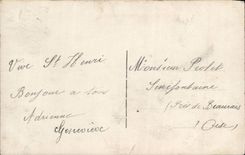 Vive St Henri
Bonjour a tous
Adrienne
Geneviève
Monsieur
Sinefontaine
Près de Beauvais
Oise